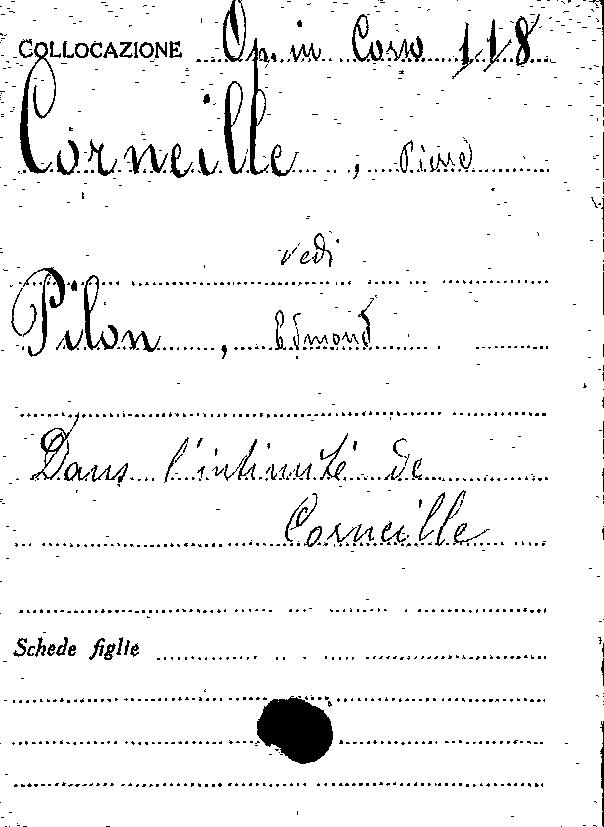 COLLOCAZIONE Op. in Corso 118
Corneille, Pierre
vedi
Pilon, Edmond
Dans l'intimité de
Corneille
Schede figlie